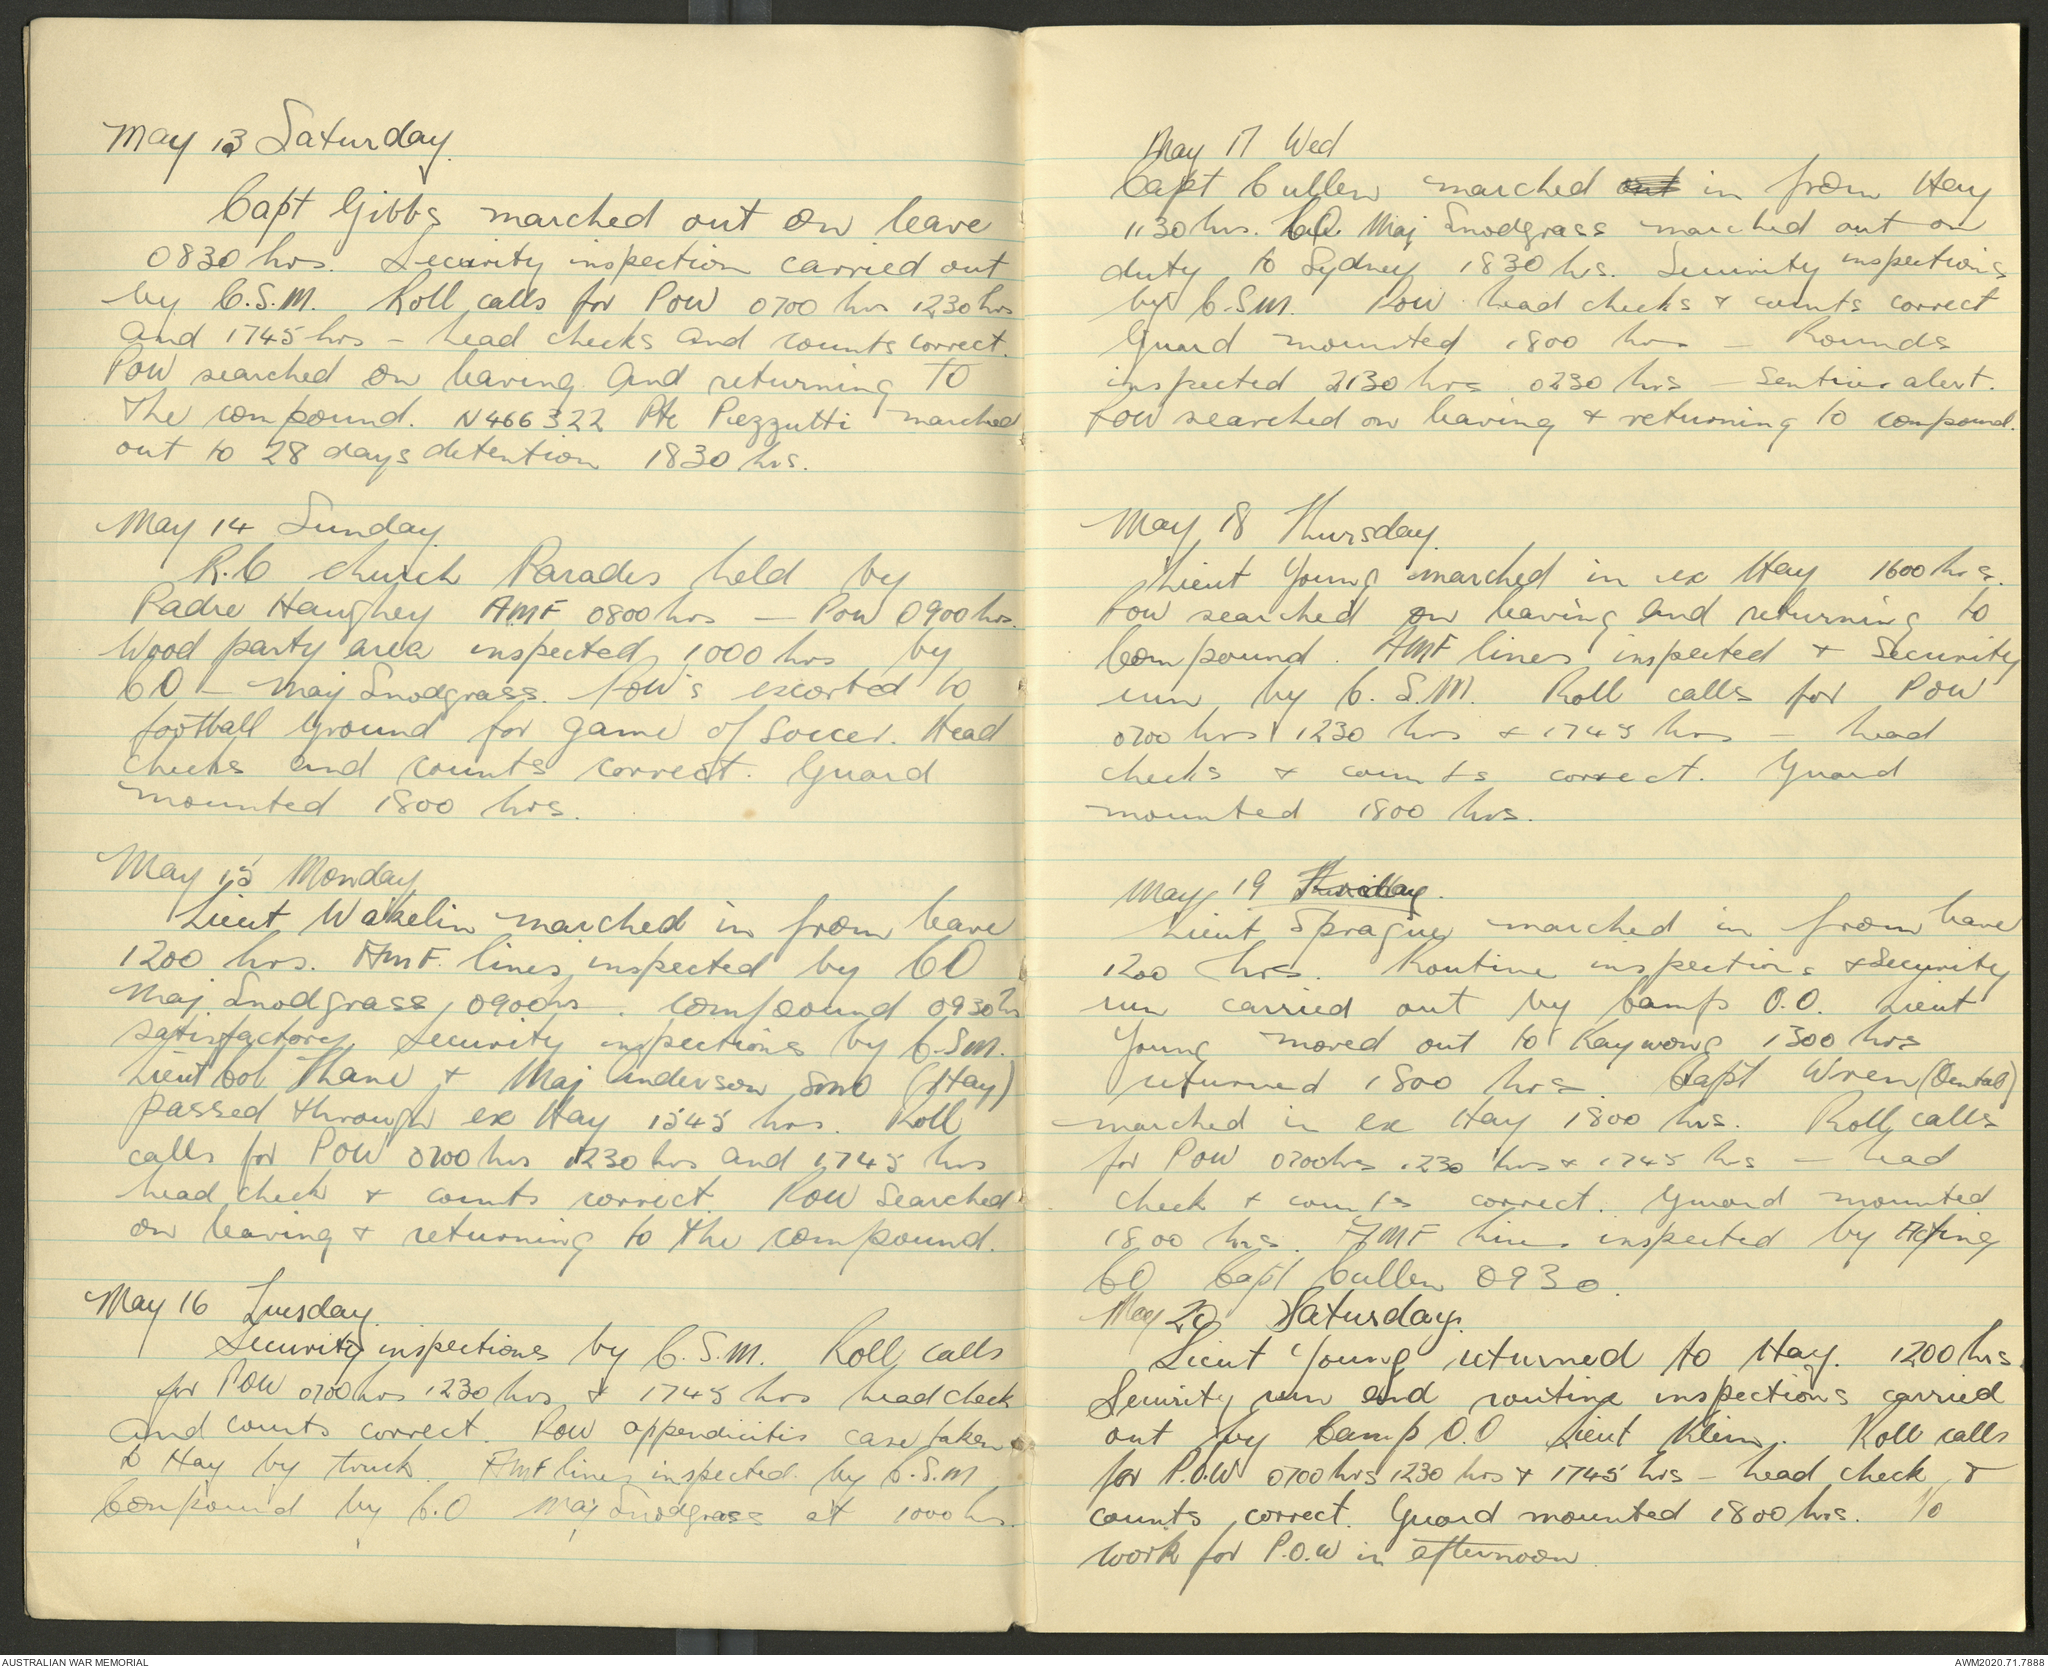 May 13 Saturday.
Capt Gibbs marched out on leave
0830 hrs. Security inspection carried out
by C.S.M. Roll calls for POW 0700 hrs 1230 hrs
and 1745 hrs - head checks and counts correct.
POW searched on leaving and returning to
the compound. N466322 Pte Pezzutti marched
out to 28 days detention 1830 hrs.
May 14 Sunday
R.C church Parades held by
Padre Haughey AMF 0800 hrs - POW 0900 hrs.
Wood party area inspected 1000 hrs by
CO - Maj Snodgrass. POW's escorted to
football ground for game of soccer. Head
checks and counts correct. Guard
mounted 1800 hrs.
May 15 Monday
Lieut Wakelin marched in from leave
1200 hrs. AMF. lines inspected by CO
Maj Snodgrass 0900 hrs. compound 0930 hrs
satisfactory. Security inspections by C.S.M.
Lieut Col Thane & Maj Anderson SMO (Hay)
passed through ex Hay 1545 hrs. Roll
calls for POW 0700 hrs 1230 hrs and 1745 hrs
head check & counts correct. POW searched
on leaving & returning to the compound.
May 16 Tuesday.
Security inspections by C.S.M. Roll calls
for POW 0700 hrs 1230 hrs & 1745 hrs head check
and counts correct. POW appendicitis case taken
to Hay by truck. AMF lines inspected by C.S.M
Compound by C.O Maj Snodgrass at 1000 hrs.
May 17 Wed
Capt Cullen marched out in from Hay
1130 hrs. CO. Maj Snodgrass marched out on
duty to Sydney 1830 hrs. Security inspections
by C.S.M. POW head checks & counts correct
Guard mounted 1800 hrs - Rounds
inspected 2130 hrs 0230 hrs - Sentries alert.
POW searched on leaving & returning to compound.
May 18 Thursday.
Lieut Young marched in ex Hay 1600 hrs.
POW searched on leaving and returning to
Compound. AMF lines inspected & Security
run by C.S.M. Roll calls for POW
0700 hrs 1230 hrs & 1745 hrs - head
checks & counts correct. Guard
mounted 1800 hrs.
May 19
Lieut Sprague marched in from leave
1200 hrs. Routine inspections & Security
run carried out by Camp O.O. Lieut
Young moved out to Kaywong 1300 hrs
returned 1800 hrs. Capt Wren (Dental)
marched in ex Hay 1800 hrs. Roll calls
for POW 0700 hrs 1230 hrs & 1745 hrs - head
check & counts correct. Guard mounted
1800 hrs. AMF lines inspected by Acting
CO Capt Cullen 0930.
May 20 Saturday.
Lieut Young returned to Hay. 1200 hrs.
Security run and routine inspections carried
out by Camp O.O Lieut Klein. Roll calls
for P.O.W 0700 hrs 1230 hrs & 1745 hrs - head check &
counts correct. Guard mounted 1800 hrs. No
work for P.O.W in afternoon.
AUSTRALIAN WAR MEMORIAL
AWM2020.71.7888